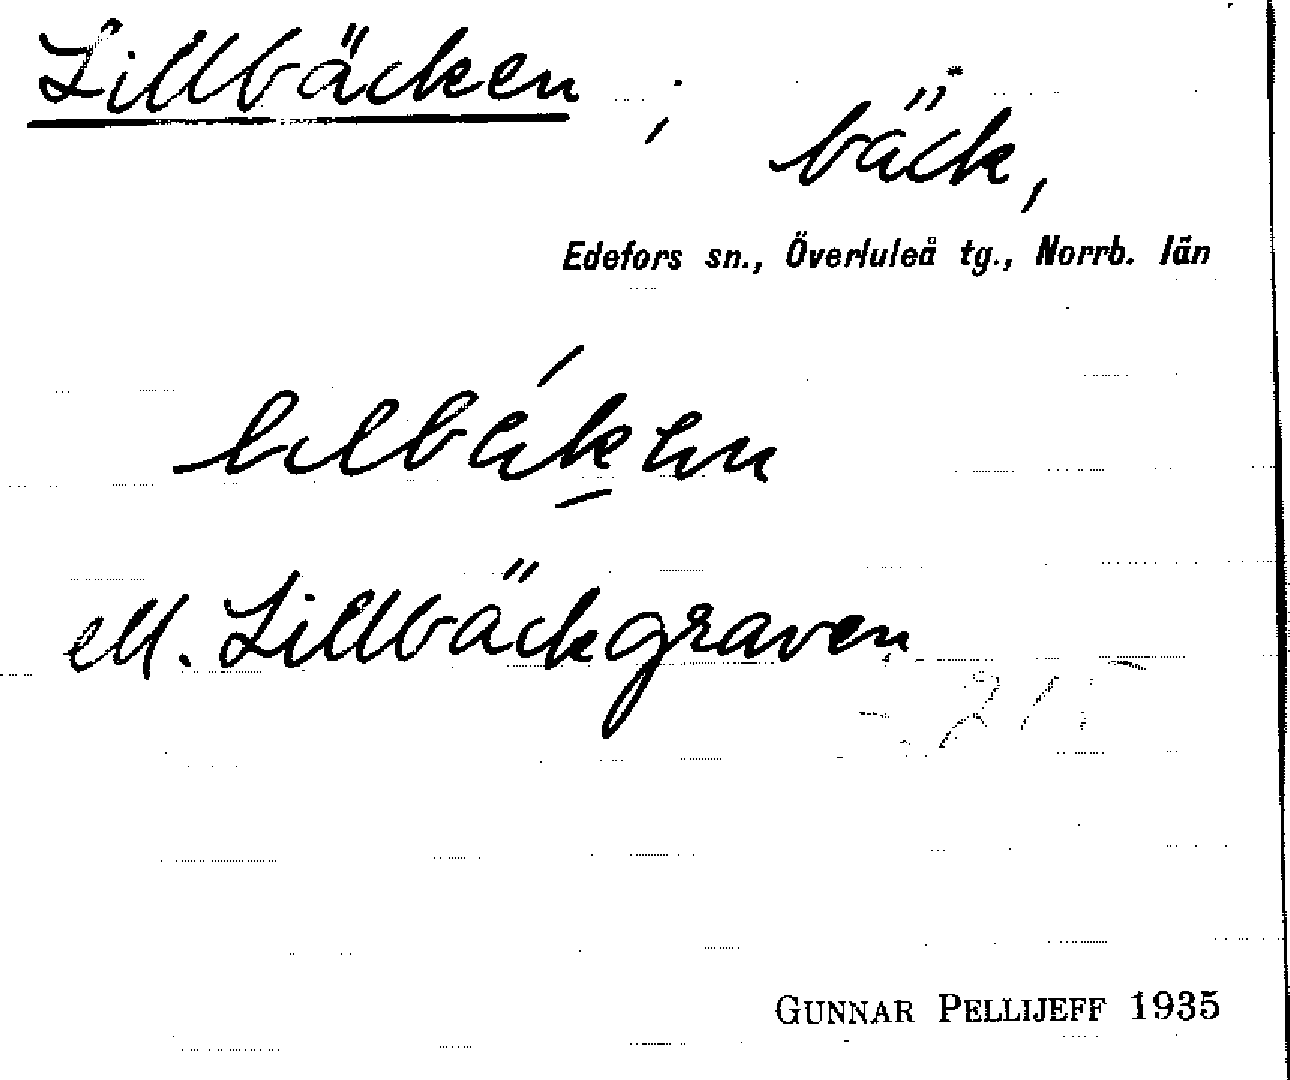 Lillbäcken ; bäck,
Edefors sn., Överluleå tg., Norrb. län
ell. Lillbäckgraven
GUNNAR PELLIJEFF 1935